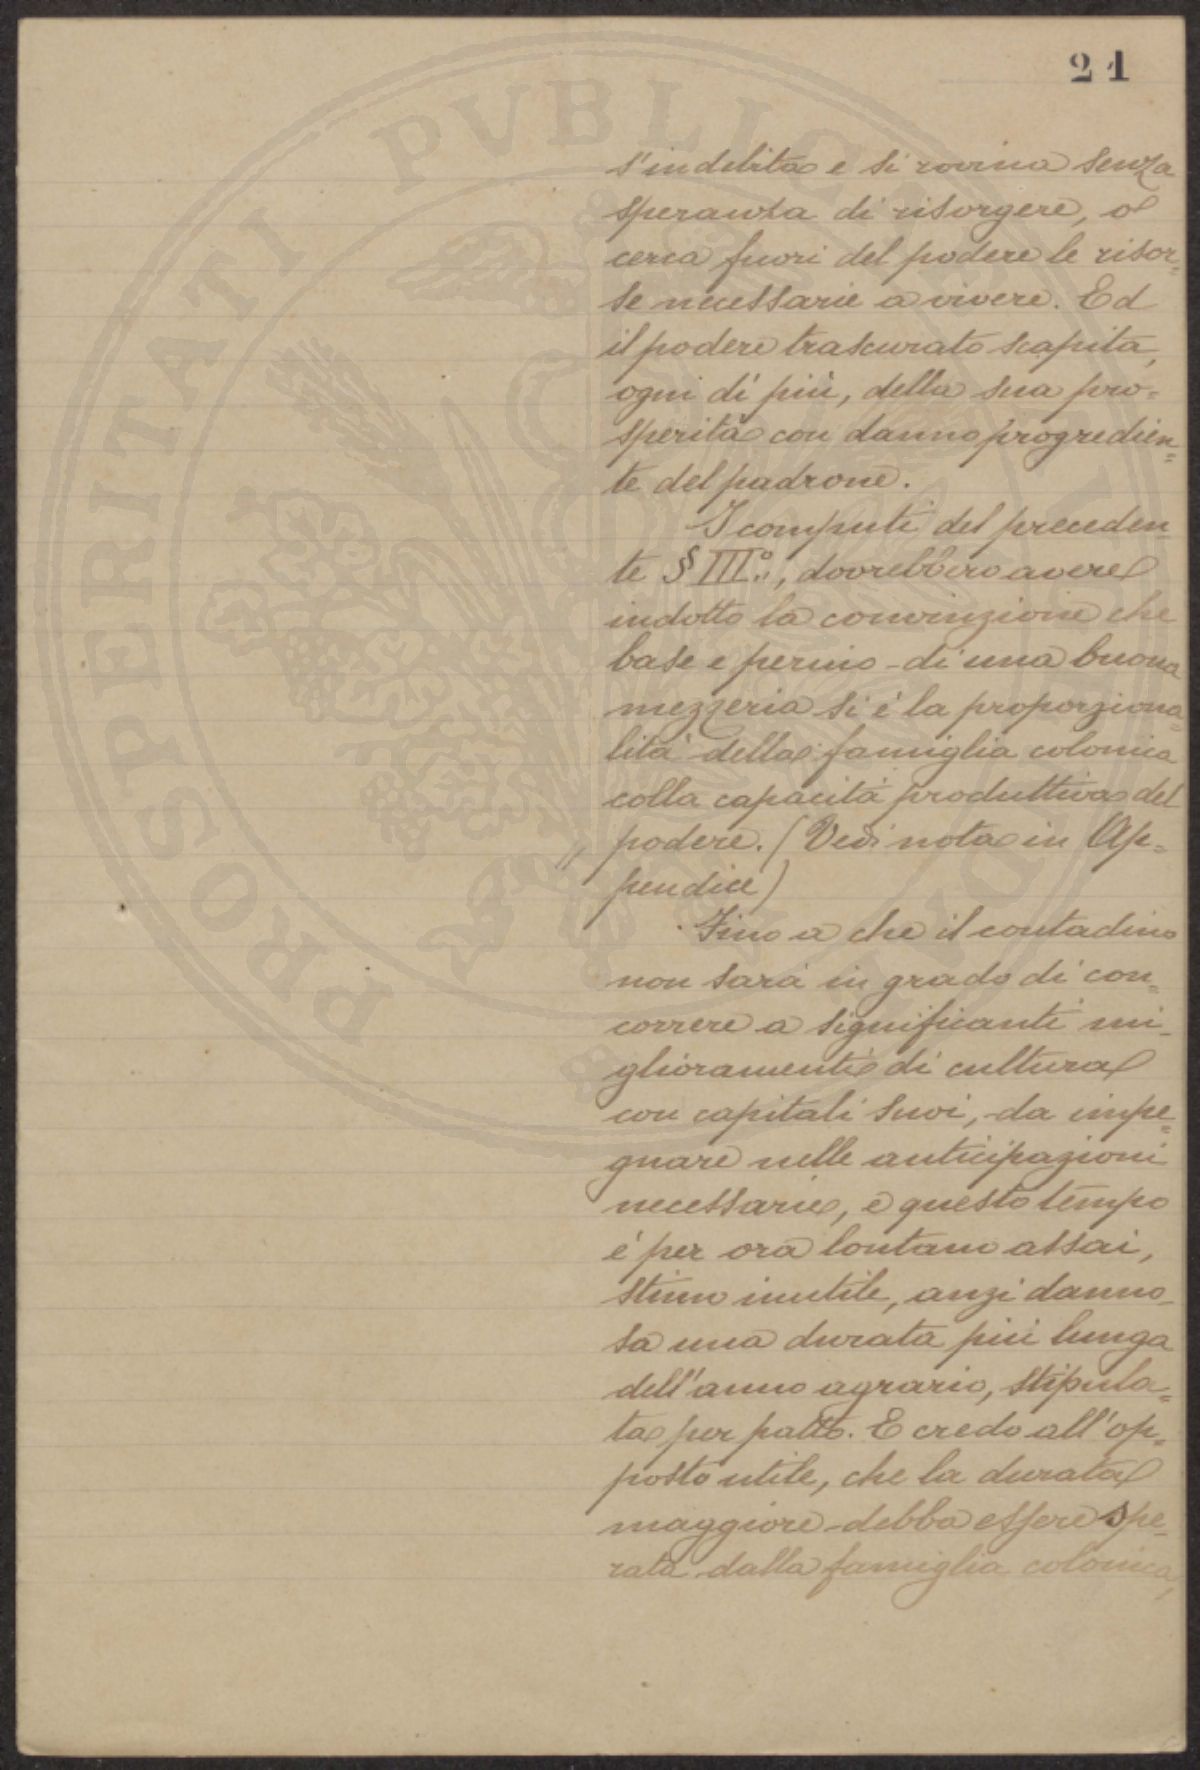 21
s'indebita e si rovina senza
speranza di risorgere, o
cerca fuori del podere le risor=
se necessarie a vivere. Ed
il podere trascurato scapita,
ogni dì più, della sua pro=
sperità con danno progredien=
te del padrone.
I computi del preceden=
te § III.°, dovrebbero avere
indotto la convinzione che
base e pernio di una buona
mezzeria si è la proporziona=
lità della famiglia colonica
colla capacità produttiva del
podere. (Vedi nota in Ap=
pendice)
Fino a che il contadino
non sarà in grado di con=
correre a significanti mi-
glioramenti di cultura
con capitali suoi, da impe=
gnare nelle anticipazioni
necessarie, e questo tempo
è per ora lontano assai,
stimo inutile, anzi danno-
sa una durata più lunga
dell'anno agrario, stipula=
ta per patto. E credo all'op=
posto utile, che la durata
maggiore debba essere spe-
rata dalla famiglia colonica,
PROSPERITATI PVBLICAE